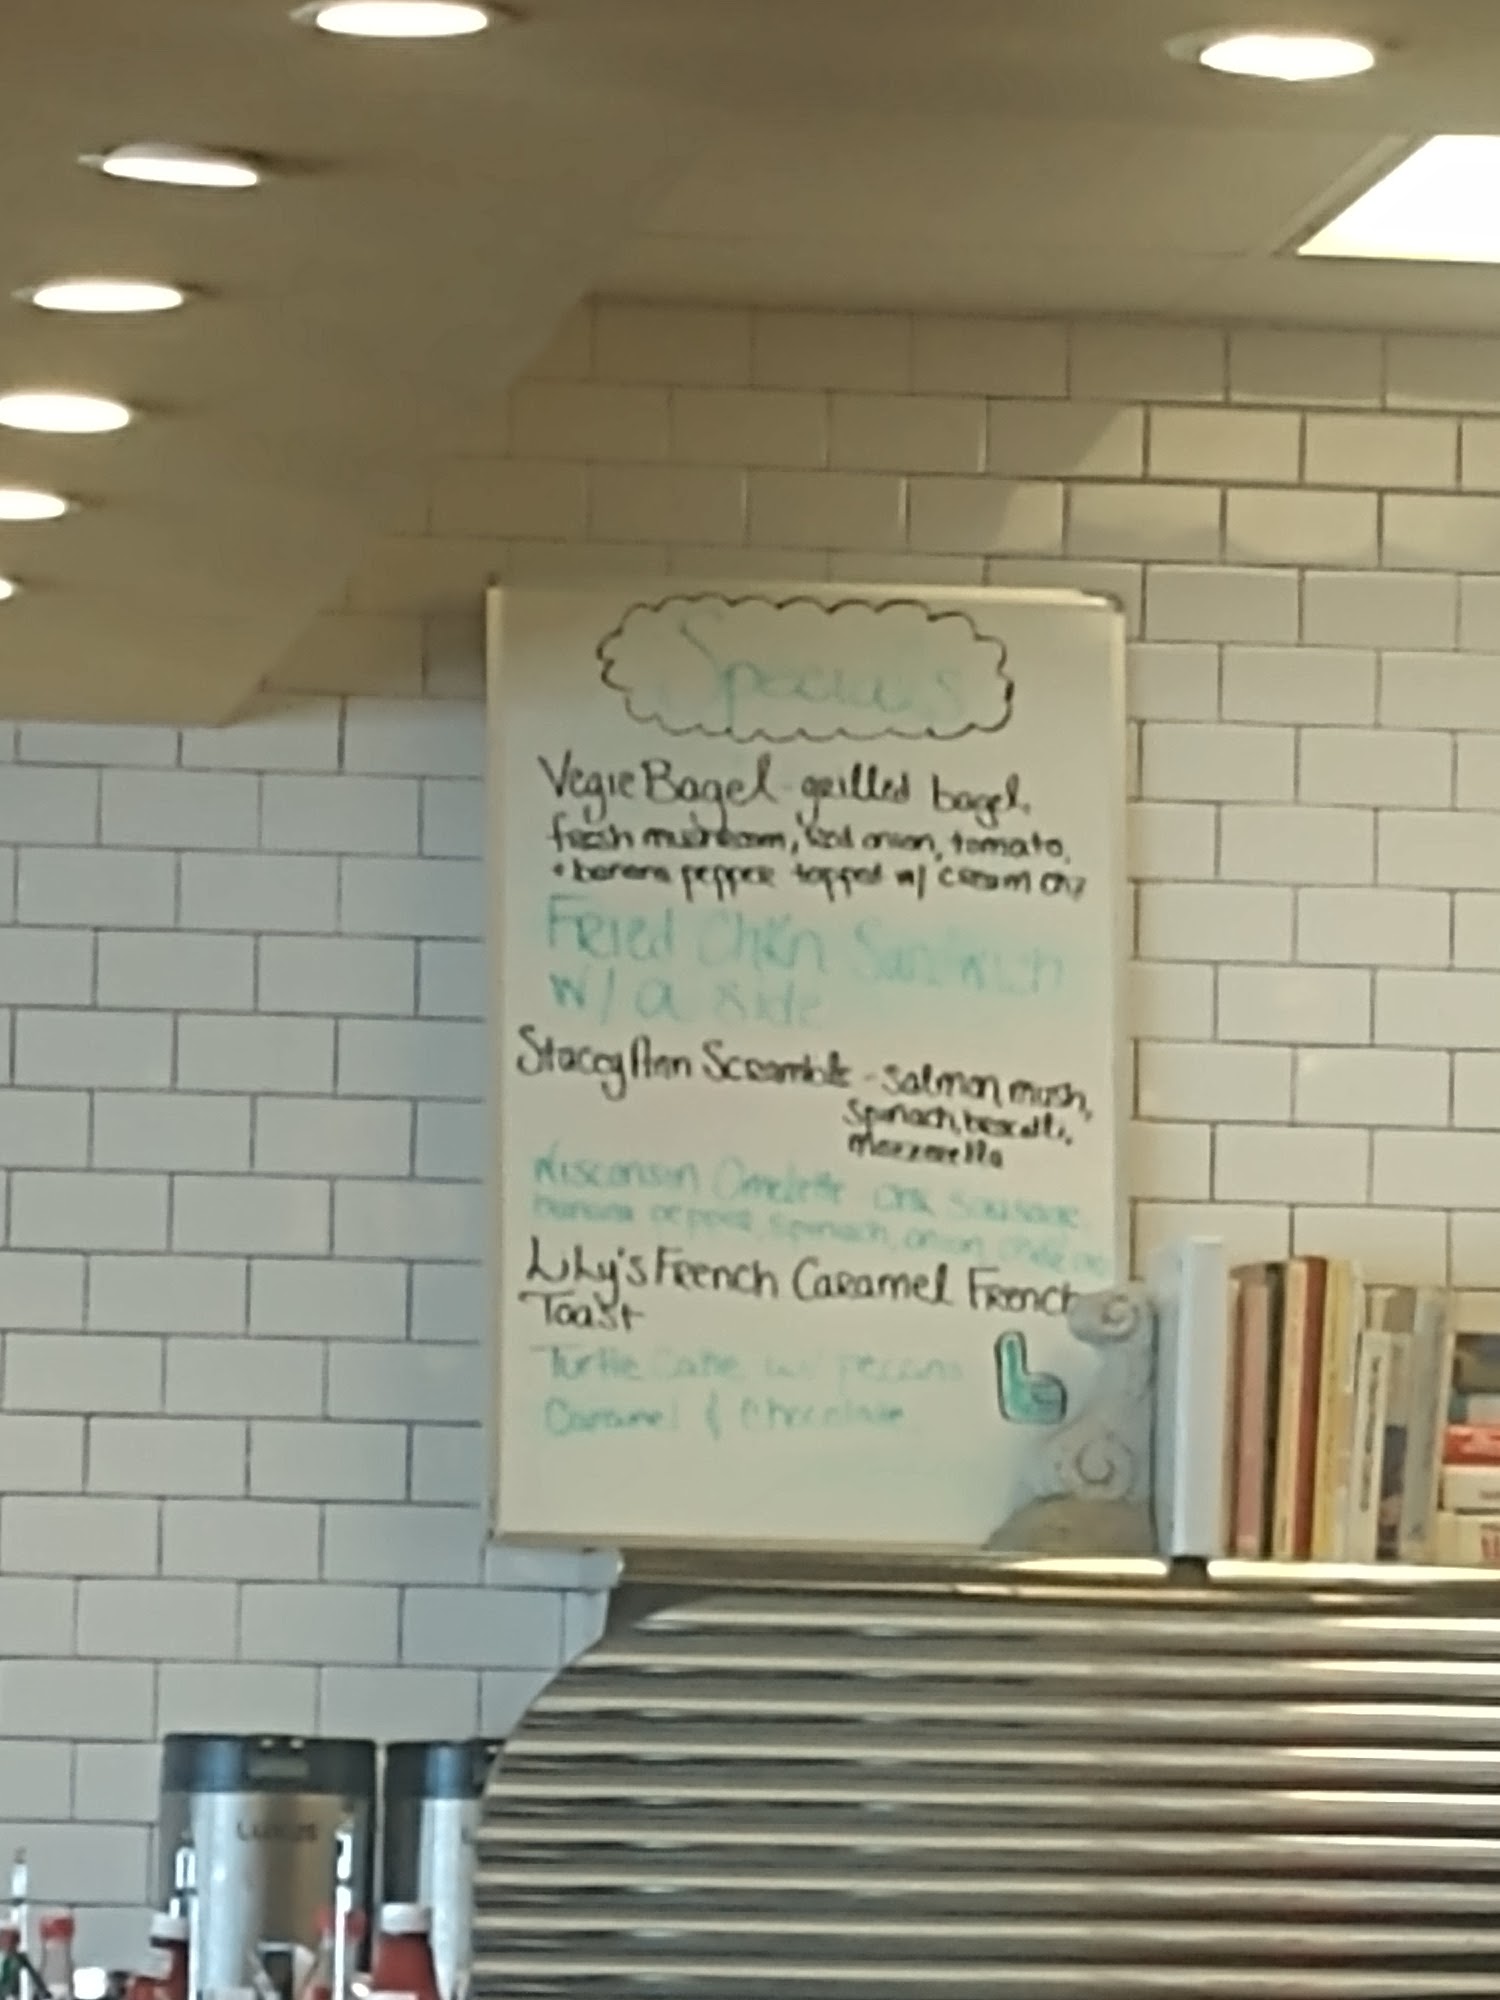 Specials
Vegie Bagel - grilled bagel,
fresh mushroom, red onion, tomato,
+ banana pepper topped w/ cream chz
Fried Chkn Sandwich
w/ a side
StaceyAnn Scramble - salmon, mush,
spinach, broccoli,
mozzarella
Wisconsin Omelette - chx sausage
banana pepper, spinach, onion,
Lily's French Caramel French
Toast
Turtle Cake w/ pecans
Caramel & Chocolate